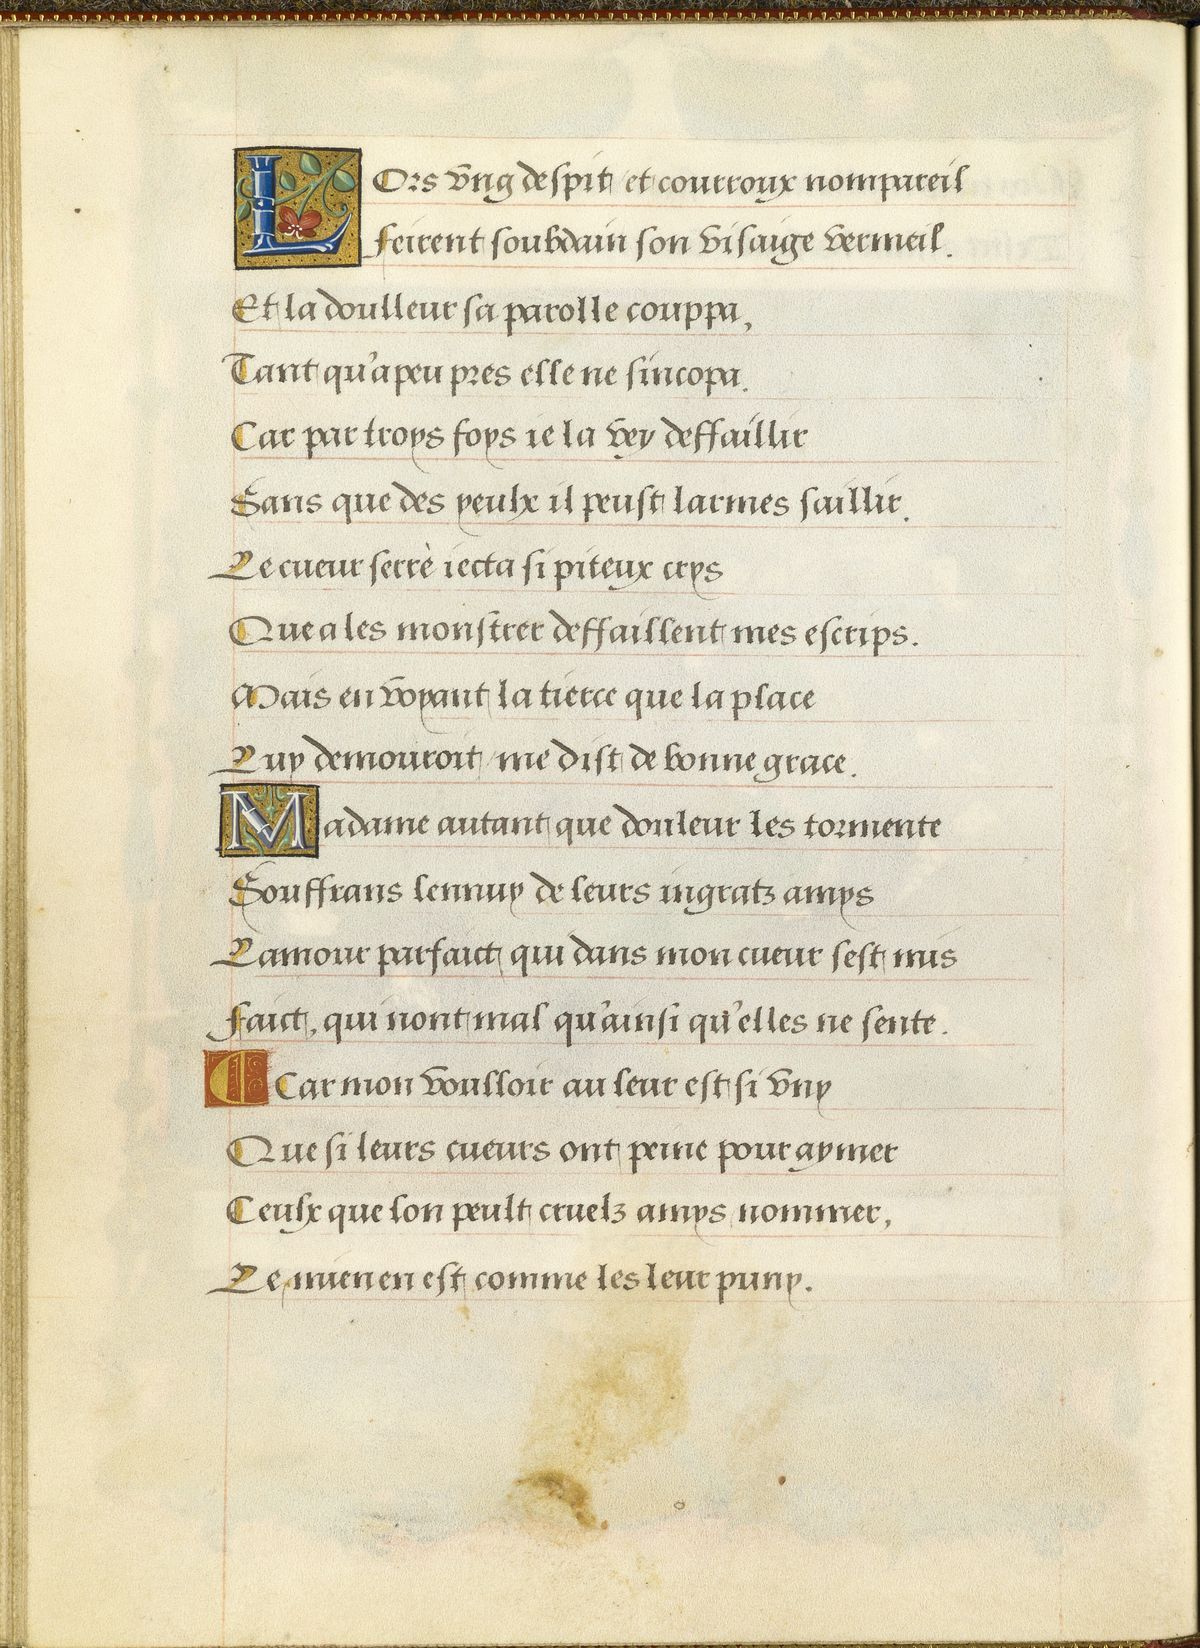 LOrs vng despit et courroux nompareil
feirent soubdain son visaige vermeil.
Et la doulleur sa parolle couppa,
Tant qu'apeu pres elle ne sincopa.
Car par troys foys ie la vey deffaillir
Sans que des yeulx il peust larmes saillir.
Le cueur serrè iecta si piteux crys
Que a les monstrer deffaillent mes escrips.
Mais en voyant la tierce que la place
Luy demouroit me dist de bonne grace.
Madame autant que douleur les tormente
Souffrans lennuy de leurs ingratz amys
Lamour parfaict qui dans mon cueur sest mis
faict, qui nont mal qu'ainsi qu'elles ne sente.
Car mon voulloir au leur est si vny
Que si leurs cueurs ont peine pour aymer
Ceulx que lon peult cruelz amys nommer,
Le mien en est comme les leur puny.